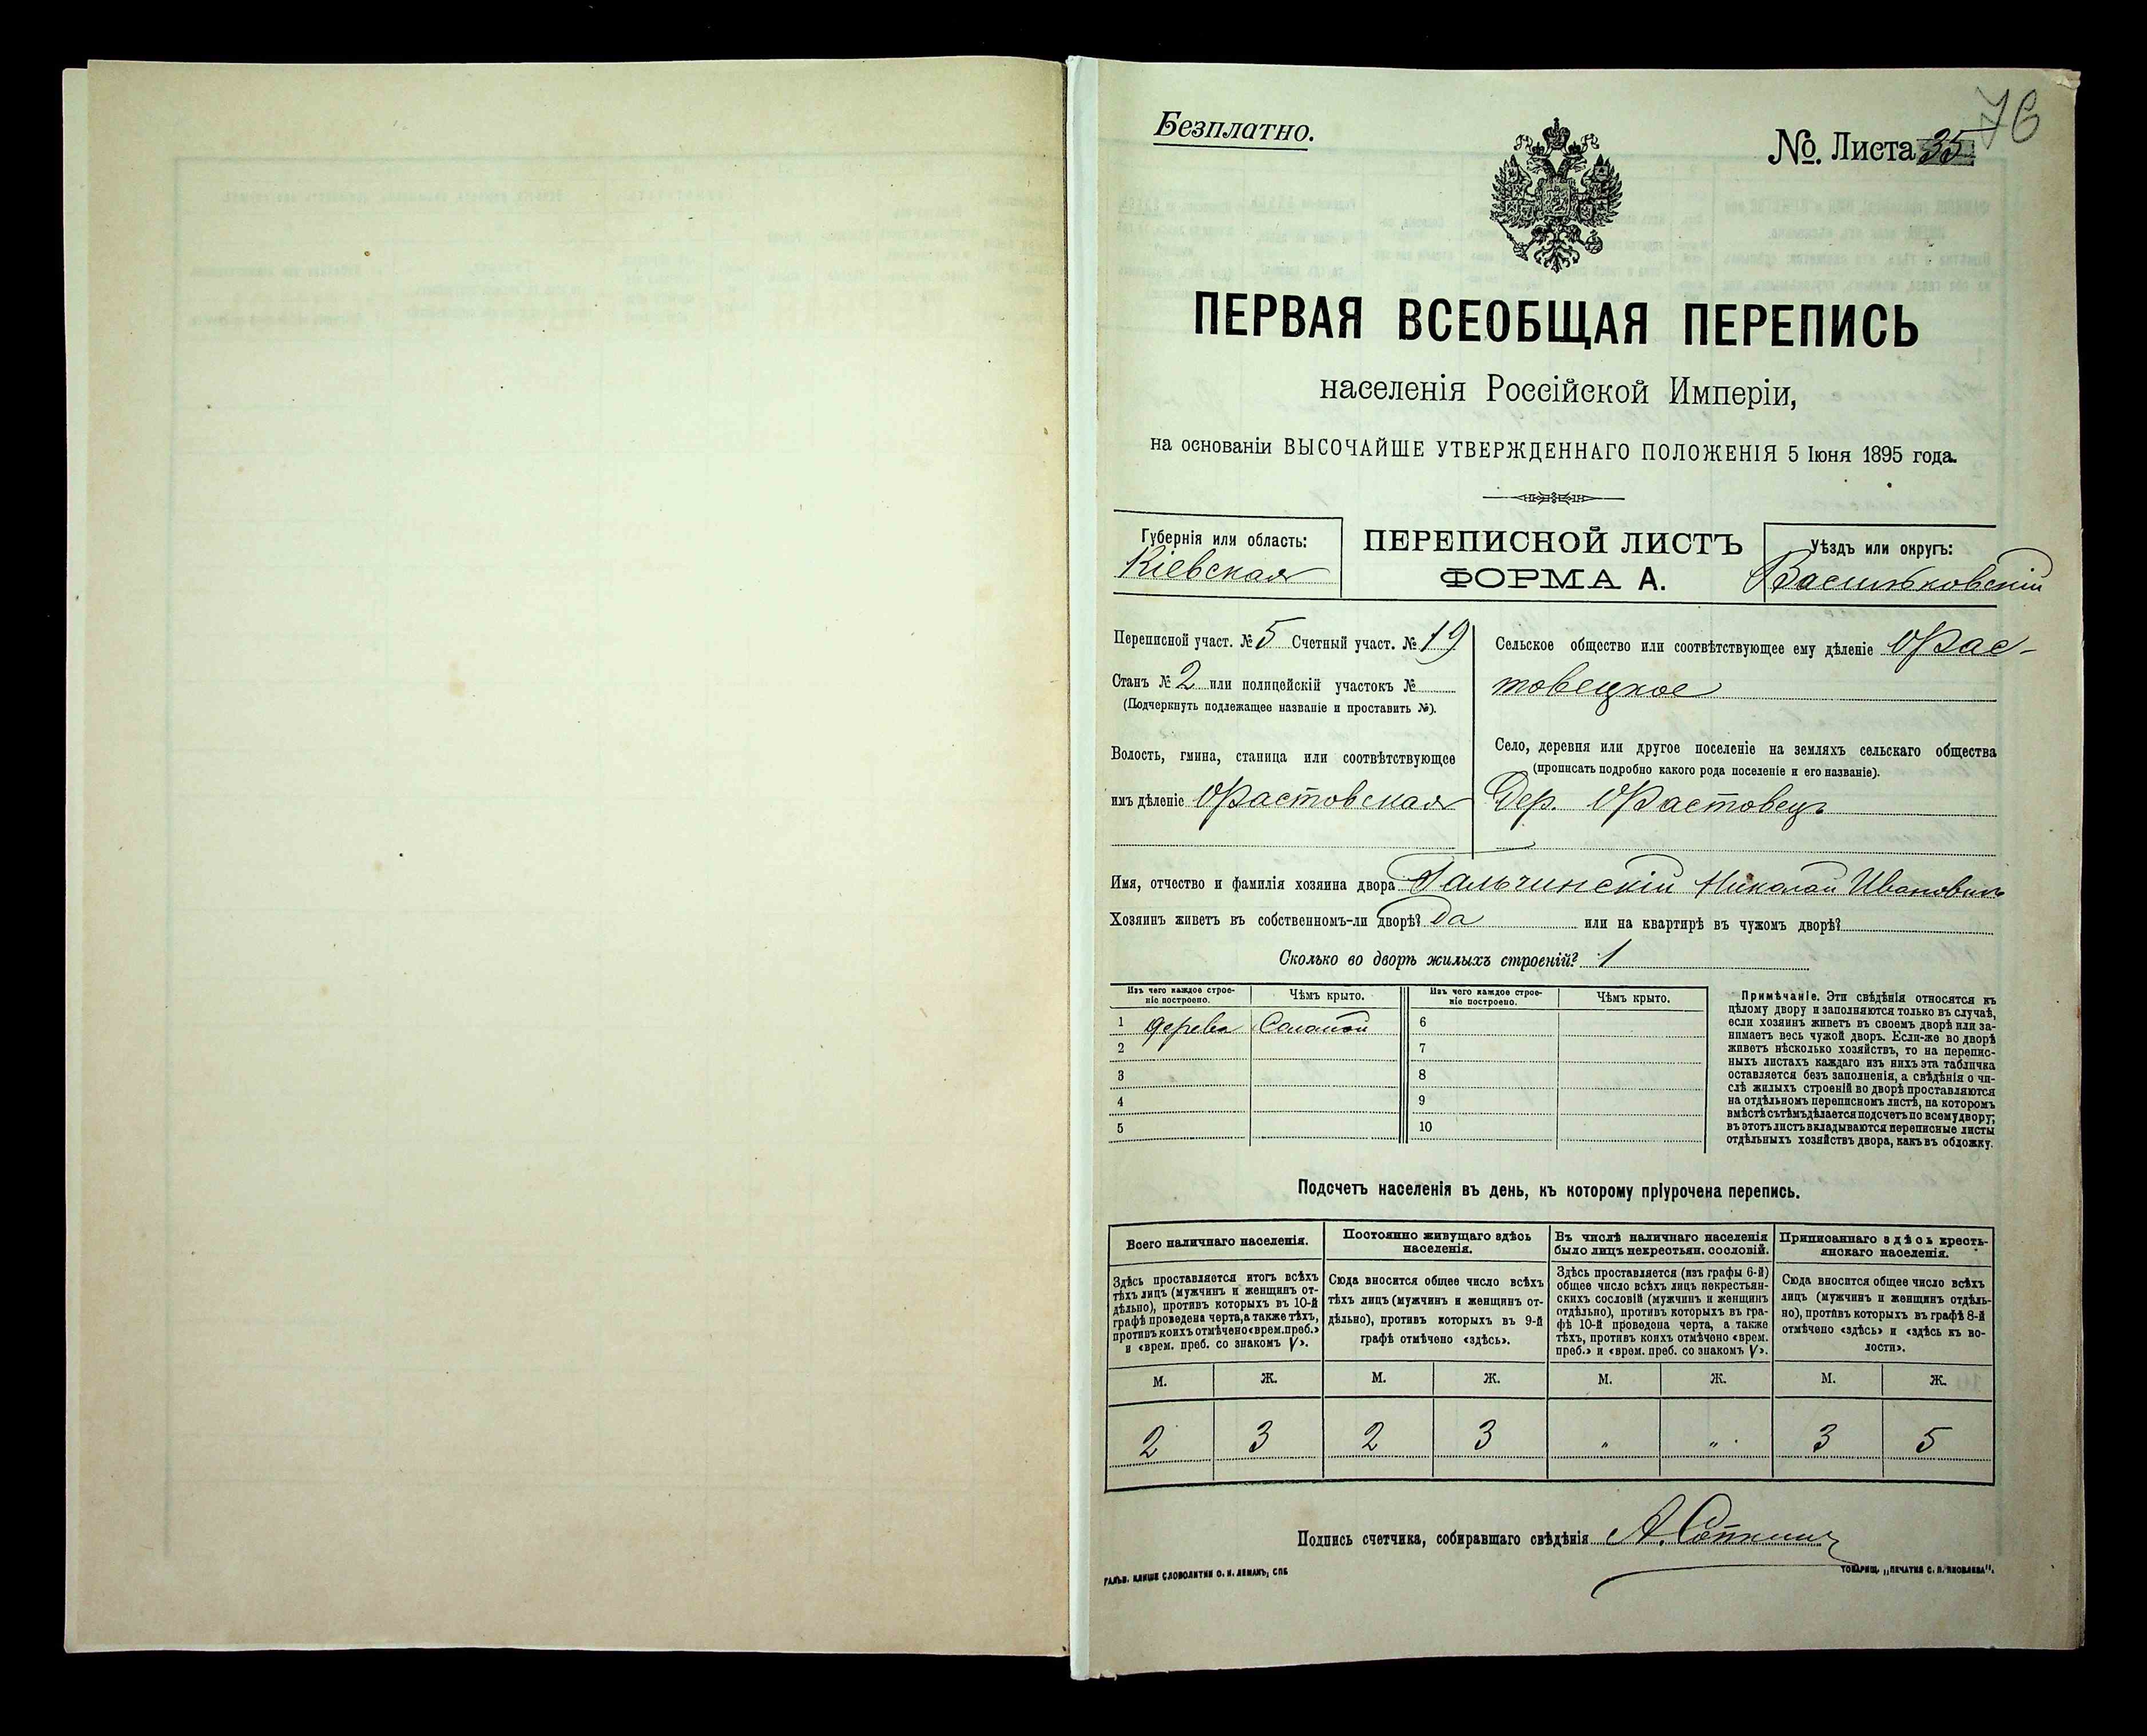 Безплатно.
№. Листа 35
76
ПЕРВАЯ ВСЕОБЩАЯ ПЕРЕПИСЬ
населенія Россійской Имперіи,
на основаніи ВЫСОЧАЙШЕ УТВЕРЖДЕННАГО ПОЛОЖЕНІЯ 5 Іюня 1895 года.
Губернія или область:
Кіевская
ПЕРЕПИСНОЙ ЛИСТЪ
ФОРМА А.
Уѣздъ или округъ:
Васильковскій
Переписной участ. № 5 Счетный участ. № 19
Станъ № 2 или полицейскій участокъ №
(Подчеркнуть подлежащее названіе и проставить №).
Волость, гмина, станица или соотвѣтствующее
имъ дѣленіе Фастовская
Сельское общество или соотвѣтствующее ему дѣленіе Фас-
товецкое
Село, деревня или другое поселеніе на земляхъ сельскаго общества
(прописать подробно какого рода поселеніе и его названіе).
Дер. Фастовецъ
Имя, отчество и фамилія хозяина двора Гальчинскій Николай Ивановичъ
Хозяинъ живетъ въ собственномъ-ли дворѣ? Да или на квартирѣ въ чужомъ дворѣ?
Сколько во дворѣ жилыхъ строеній? 1
Изъ чего каждое строе-
ніе построено.
Чѣмъ крыто.
Изъ чего каждое строе-
ніе построено.
Чѣмъ крыто.
1 дерева Соломой 6
2 7
3 8
4 9
5 10
Примѣчаніе. Эти свѣдѣнія относятся къ
цѣлому двору и заполняются только въ случаѣ,
если хозяинъ живетъ въ своемъ дворѣ или за-
нимаетъ весь чужой дворъ. Если-же во дворѣ
живетъ нѣсколько хозяйствъ, то на перепис-
ныхъ листахъ каждаго изъ нихъ эта табличка
оставляется безъ заполненія, а свѣдѣнія о чи-
слѣ жилыхъ строеній во дворѣ проставляются
на отдѣльномъ переписномъ листѣ, на которомъ
вмѣстѣ съ тѣмъ дѣлается подсчетъ по всему двору;
въ этотъ листъ вкладываются переписные листы
отдѣльныхъ хозяйствъ двора, какъ въ обложку.
Подсчетъ населенія въ день, къ которому пріурочена перепись.
Всего наличнаго населенія.
Здѣсь проставляется итогъ всѣхъ
тѣхъ лицъ (мужчинъ и женщинъ от-
дѣльно), противъ которыхъ въ 10-й
графѣ проведена черта, а также тѣхъ,
противъ коихъ отмѣчено «врем. преб.»
и «врем. преб. со знакомъ V».
Постоянно живущаго здѣсь
населенія.
Сюда вносится общее число всѣхъ
тѣхъ лицъ (мужчинъ и женщинъ от-
дѣльно), противъ которыхъ въ 9-й
графѣ отмѣчено «здѣсь».
Въ числѣ наличнаго населенія
было лицъ некрестьян. сословій.
Здѣсь проставляется (изъ графы 6-й)
общее число всѣхъ лицъ некрестьян-
скихъ сословій (мужчинъ и женщинъ
отдѣльно), противъ которыхъ въ гра-
фѣ 10-й проведена черта, а также
тѣхъ, противъ коихъ отмѣчено «врем.
преб.» и «врем. преб. со знакомъ V».
Приписаннаго здѣсь кресть-
янскаго населенія.
Сюда вносится общее число всѣхъ
лицъ (мужчинъ и женщинъ отдѣль-
но), противъ которыхъ въ графѣ 8-й
отмѣчено «здѣсь» и «здѣсь къ во-
лости».
М. Ж. М. Ж. М. Ж. М. Ж.
2 3 2 3 " " 3 5
Подпись счетчика, собиравшаго свѣдѣнія А.
ГАЛЬВ. КЛИШЕ СЛОВОЛИТНИ О. И. ЛЕМАНЪ, СПБ
ТОВАРИЩ. „ПЕЧАТНЯ С. П. ЯКОВЛЕВА".